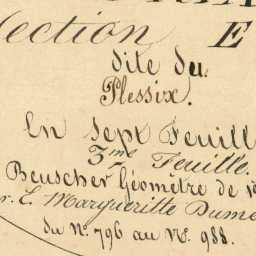 Section E
dite du
Plessix.
En Sept Feuill
3me Feuille.
Beuscher Géomètre de 1
r. E. Margueritte Dume
du N°. 796 au N°. 988.